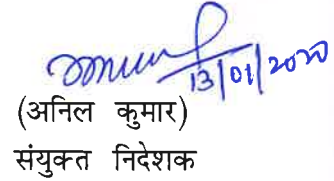 13/01/2020
(अनिल कुमार)
संयुक्त निदेशक